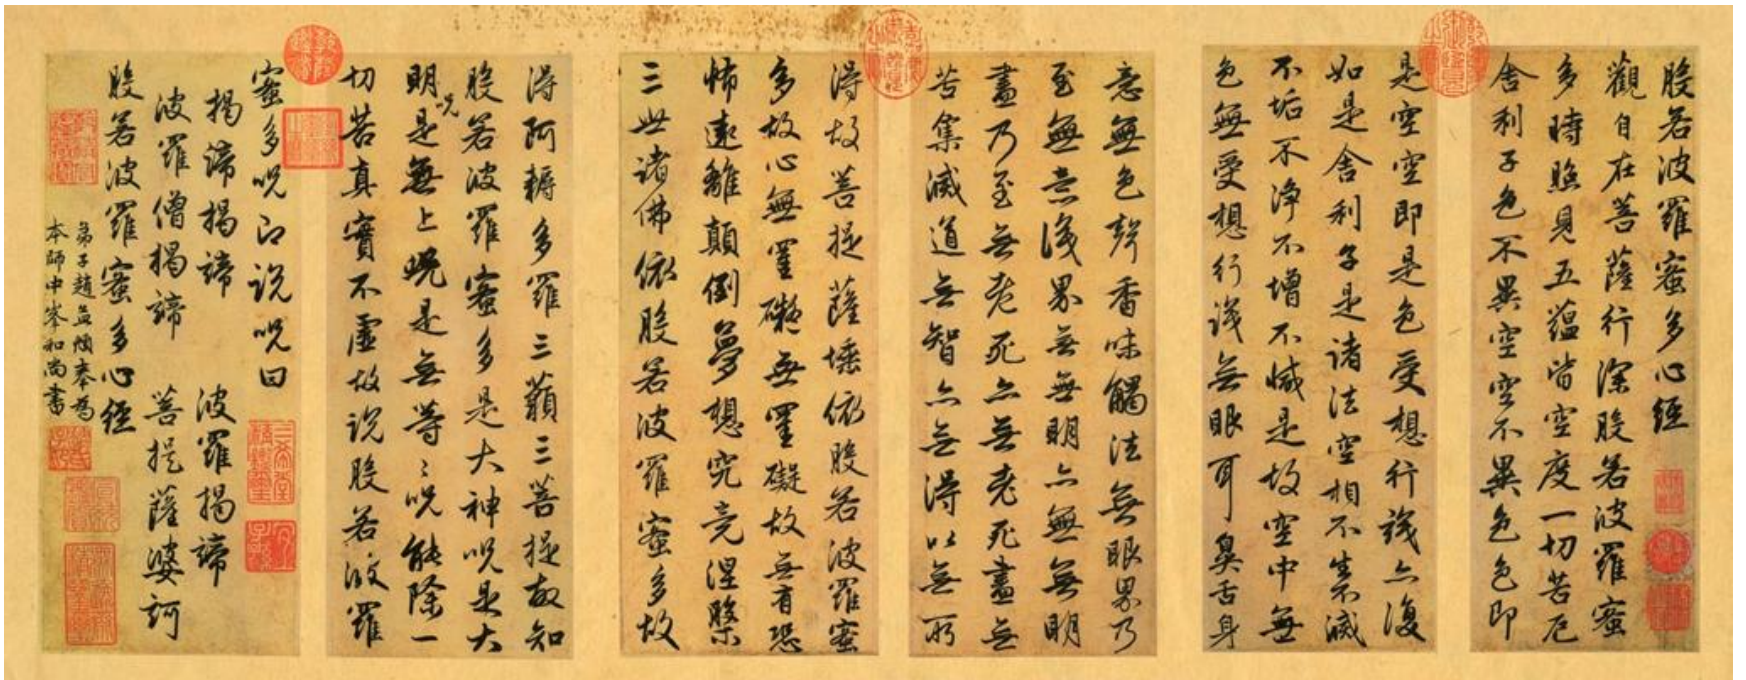 般若波羅蜜多心經
觀自在菩薩行深般若波羅蜜
多時照見五蘊皆空度一切苦厄
舍利子色不異空空不異色色即
是空空即是色受想行識亦復
如是舍利子是諸法空相不生不滅
不垢不淨不增不減是故空中無
色無受想行識無眼耳鼻舌身
意無色聲香味觸法無眼界乃
至無意識界無無明亦無無明
盡乃至無老死亦無老死盡無
苦集滅道無智亦無得以無所
得故菩提薩埵依般若波羅蜜
多故心無罣礙無罣礙故無有恐
怖遠離顛倒夢想究竟涅槃
三世諸佛依般若波羅蜜多故
得阿耨多羅三藐三菩提故知
般若波羅蜜多是大神呪是大
明呪是無上呪是無等〻呪能除一
切苦真實不虛故說般若波羅
蜜多呪即說呪曰
揭諦揭諦 波羅揭諦
波羅僧揭諦 菩提薩婆訶
般若波羅蜜多心經
弟子趙孟頫奉為
本師中峯和尚書